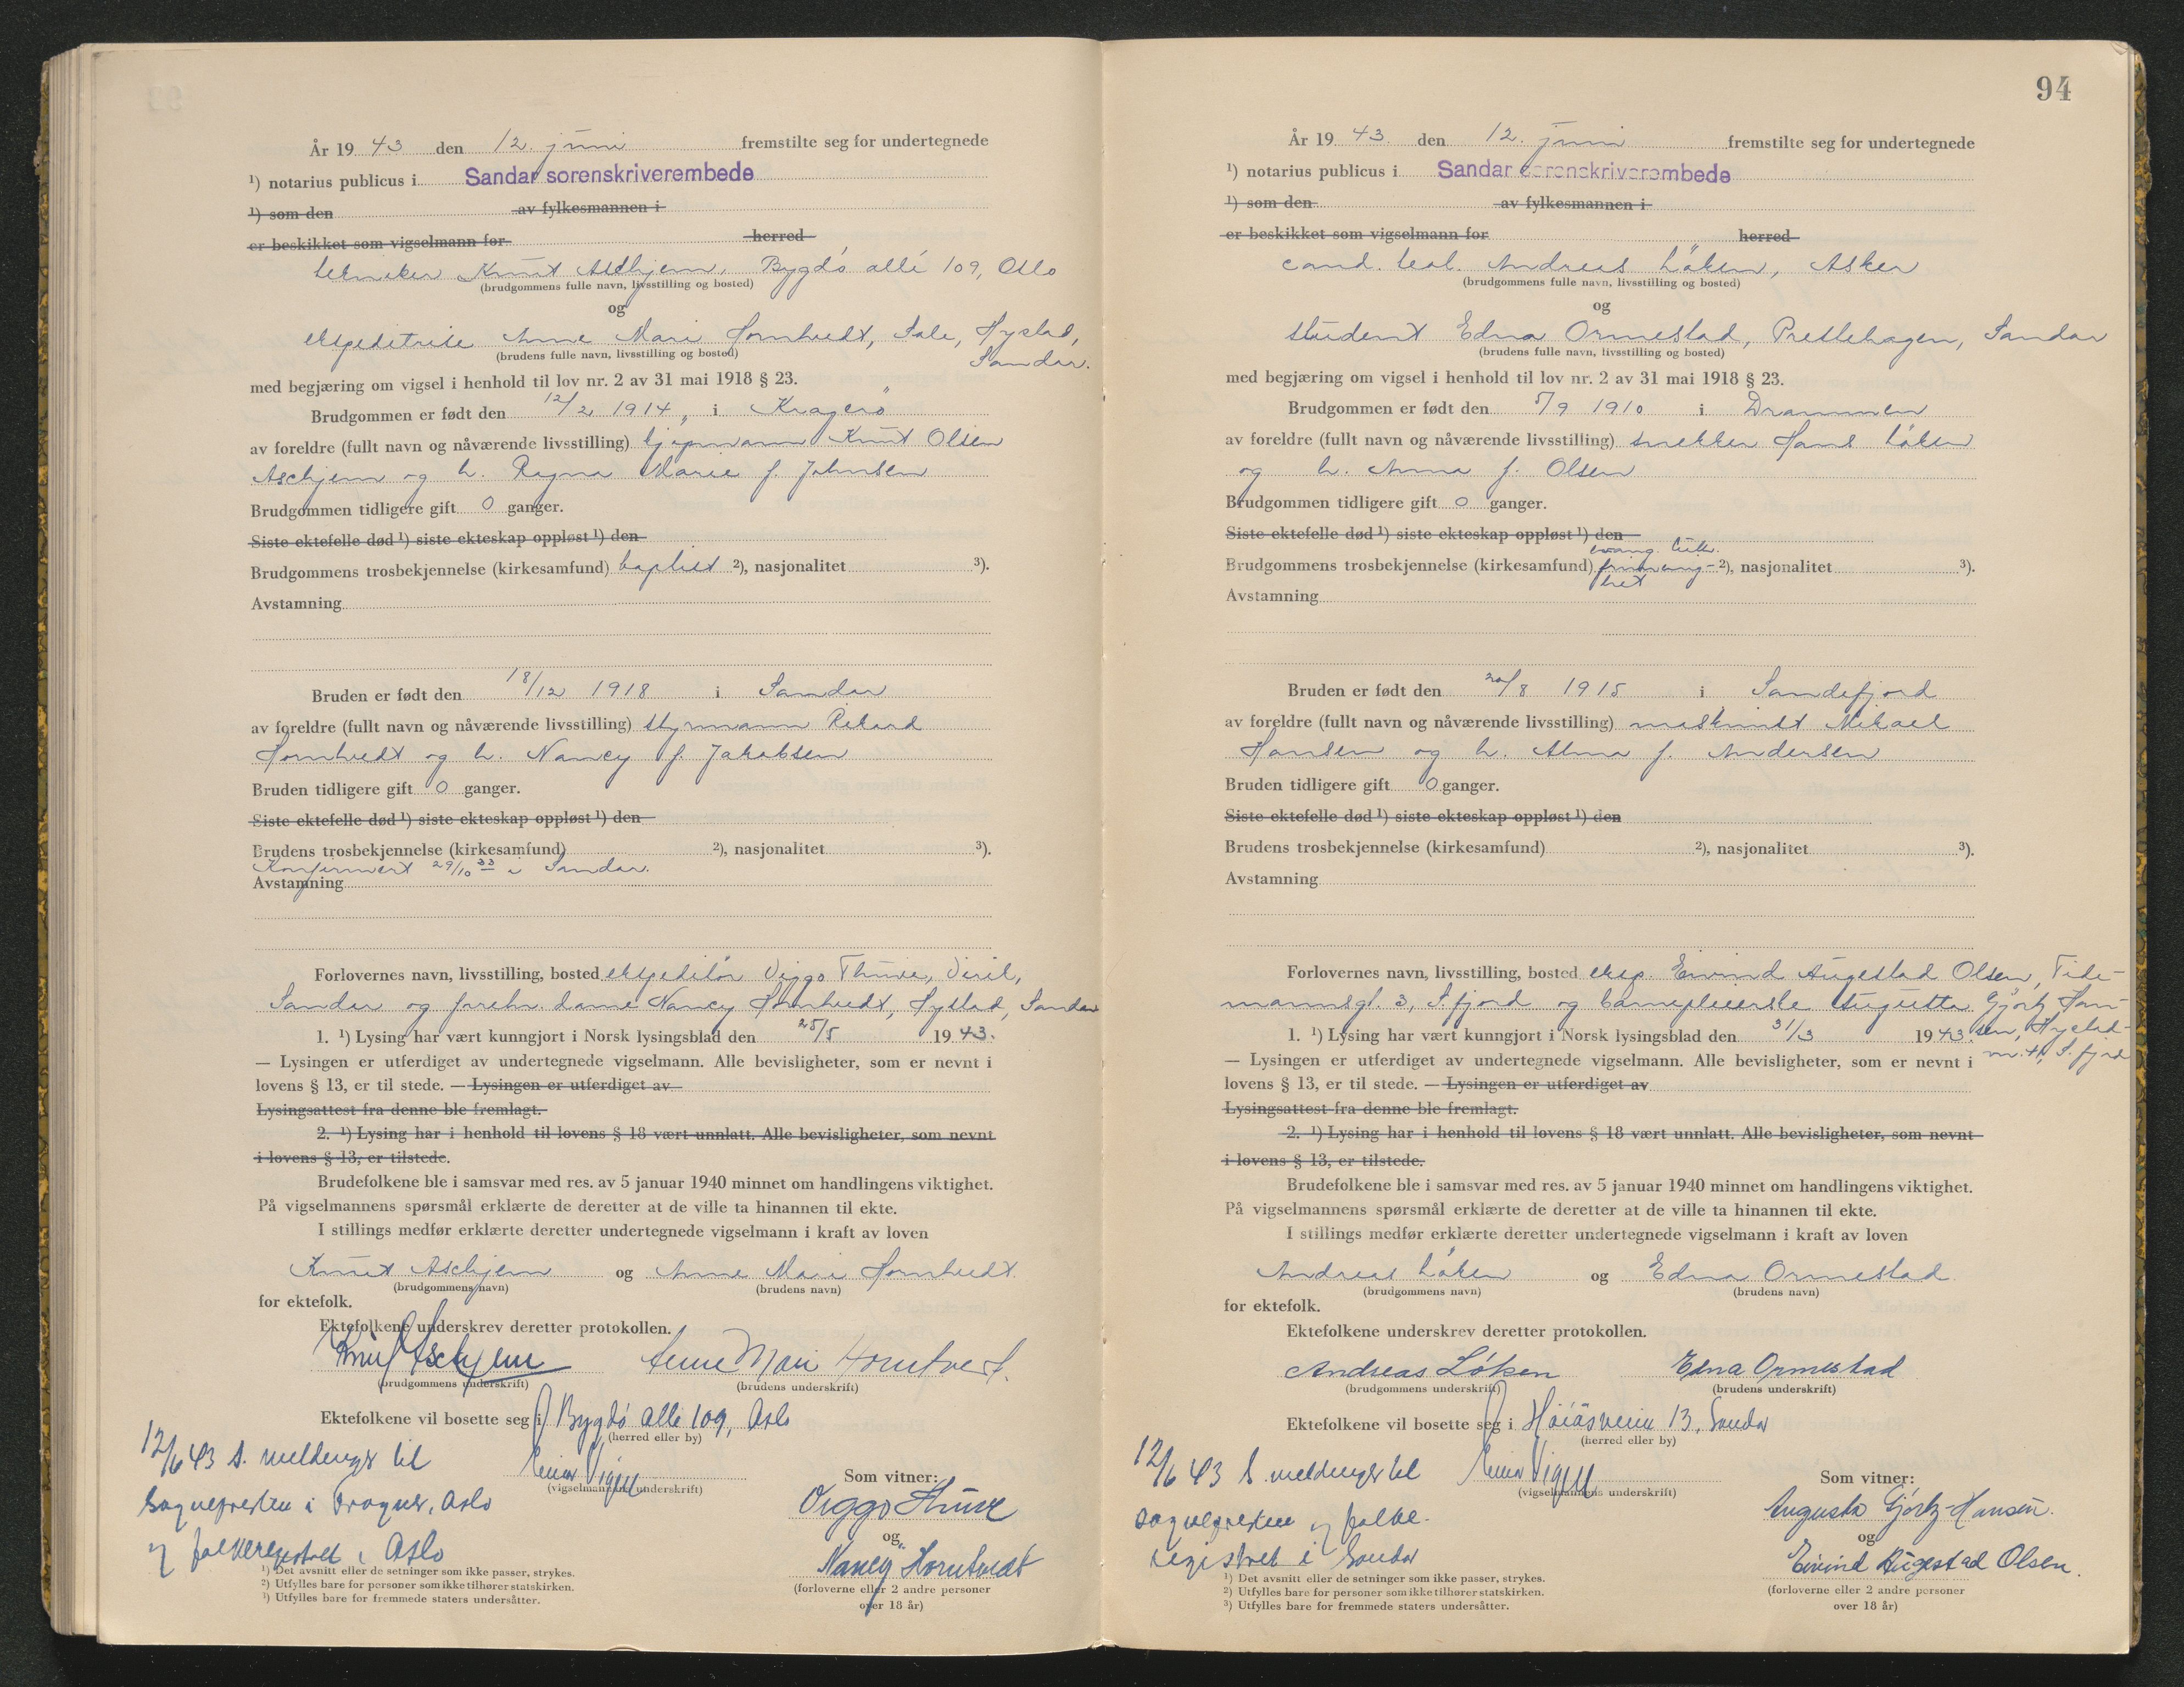 År 19 43 den 12. juni fremstilte seg for undertegnede
¹) notarius publicus i Sandar sorenskriverembede
¹) som den av fylkesmannen i
er beskikket som vigselmann for herred
tekniker Knut Aschjem, Bygdö allé 109, Oslo
(brudgommens fulle navn, livsstilling og bosted)
og
ekspeditrise Anne Mari Horntvedt, Sole, Hystad,
Sandar.
(brudens fulle navn, livsstilling og bosted)
med begjæring om vigsel i henhold til lov nr. 2 av 31 mai 1918 § 23.
Brudgommen er født den 12/2 1914, i Kragerö
av foreldre (fullt navn og nåværende livsstilling) kjøpmann Knut Olsen
Aschjem og h. Ragna Marie f. Johnsen
Brudgommen tidligere gift 0 ganger.
Siste ektefelle død ¹) siste ekteskap oppløst ¹) den
Brudgommens trosbekjennelse (kirkesamfund) baptist ²), nasjonalitet ³).
Avstamning
Bruden er født den 18/12 1918 i Sandar
av foreldre (fullt navn og nåværende livsstilling) styrmann Rikard
Horntvedt og h. Nancy f. Jakobsen
Bruden tidligere gift 0 ganger.
Siste ektefelle død ¹) siste ekteskap oppløst ¹) den
Brudens trosbekjennelse (kirkesamfund) ²), nasjonalitet ³).
Konfirmert 29/10 33 i Sandar.
Avstamning
Forlovernes navn, livsstilling, bosted ekspeditör Viggo Thuve, Virik,
Sandar og forretn. dame Nancy Horntvedt, Hystad, Sandar
1. ¹) Lysing har vært kunngjort i Norsk lysingsblad den 25/5 1943.
— Lysingen er utferdiget av undertegnede vigselmann. Alle bevisligheter, som er nevnt i
lovens § 13, er til stede. — Lysingen er utferdiget av
Lysingsattest fra denne ble fremlagt.
2. ¹) Lysing har i henhold til lovens § 18 vært unnlatt. Alle bevisligheter, som nevnt
i lovens § 13, er tilstede.
Brudefolkene ble i samsvar med res. av 5 januar 1940 minnet om handlingens viktighet.
På vigselmannens spørsmål erklærte de deretter at de ville ta hinannen til ekte.
I stillings medfør erklærte deretter undertegnede vigselmann i kraft av loven
Knut Aschjem og Anne Mari Horntvedt
(brudgommens navn) (brudens navn)
for ektefolk.
Ektefolkene underskrev deretter protokollen.
Knut Aschjem Anne Mari Horntvedt.
(brudgommens underskrift) (brudens underskrift)
Ektefolkene vil bosette seg i Bygdö allé 109, Oslo
(herred eller by)
12/6 43 S. meldinger til
sognepresten i Frogner, Oslo
og folkeregistret i Oslo
(vigselmannens underskrift)
Som vitner:
Viggo Thuve
og
Nancy Horntvedt
(forloverne eller 2 andre personer
over 18 år)
¹) Det avsnitt eller de setninger som ikke passer, strykes.
²) Utfylles bare for personer som ikke tilhører statskirken.
³) Utfylles bare for fremmede staters undersåtter.
94
År 19 43. den 12. juni fremstilte seg for undertegnede
¹) notarius publicus i Sandar sorenskriverembede
¹) som den av fylkesmannen i
er beskikket som vigselmann for herred
cand. teol. Andreas Löken, Asker
(brudgommens fulle navn, livsstilling og bosted)
og
student Edna Ormestad, Prestehagen, Sandar
(brudens fulle navn, livsstilling og bosted)
med begjæring om vigsel i henhold til lov nr. 2 av 31 mai 1918 § 23.
Brudgommen er født den 5/9 1910 i Drammen
av foreldre (fullt navn og nåværende livsstilling) snekker Hans Löken
og h. Anna f. Olsen
Brudgommen tidligere gift 0 ganger.
Siste ektefelle død ¹) siste ekteskap oppløst ¹) den
evang. luth.
Brudgommens trosbekjennelse (kirkesamfund) frimenig- ²), nasjonalitet ³).
het
Avstamning
Bruden er født den 20/8 1915 i Sandefjord
av foreldre (fullt navn og nåværende livsstilling) maskinist Mikael
Hansen og h. Alma f. Andersen
Bruden tidligere gift 0 ganger.
Siste ektefelle død ¹) siste ekteskap oppløst ¹) den
Brudens trosbekjennelse (kirkesamfund) ²), nasjonalitet ³).
Avstamning
Forlovernes navn, livsstilling, bosted eksp. Eivind Augestad Olsen, Tide-
mannsgt. 3, S.fjord og barnepleierske Augusta Gjörtz Han-
sen, Hystad-
1. ¹) Lysing har vært kunngjort i Norsk lysingsblad den 31/3 1943.
— Lysingen er utferdiget av undertegnede vigselmann. Alle bevisligheter, som er nevnt i
lovens § 13, er til stede. — Lysingen er utferdiget av
Lysingsattest fra denne ble fremlagt.
2. ¹) Lysing har i henhold til lovens § 18 vært unnlatt. Alle bevisligheter, som nevnt
i lovens § 13, er tilstede.
Brudefolkene ble i samsvar med res. av 5 januar 1940 minnet om handlingens viktighet.
På vigselmannens spørsmål erklærte de deretter at de ville ta hinannen til ekte.
I stillings medfør erklærte deretter undertegnede vigselmann i kraft av loven
Andreas Löken og Edna Ormestad
(brudgommens navn) (brudens navn)
for ektefolk.
Ektefolkene underskrev deretter protokollen.
Andreas Löken Edna Ormestad
(brudgommens underskrift) (brudens underskrift)
Ektefolkene vil bosette seg i Höiåsveien 13, Sandar
(herred eller by)
12/6 43 S. meldinger til
sognepresten og folke-
registret i Sandar
(vigselmannens underskrift)
Som vitner:
Augusta Gjörtz-Hansen.
og
Eivind Augestad Olsen.
(forloverne eller 2 andre personer
over 18 år)
¹) Det avsnitt eller de setninger som ikke passer, strykes.
²) Utfylles bare for personer som ikke tilhører statskirken.
³) Utfylles bare for fremmede staters undersåtter.